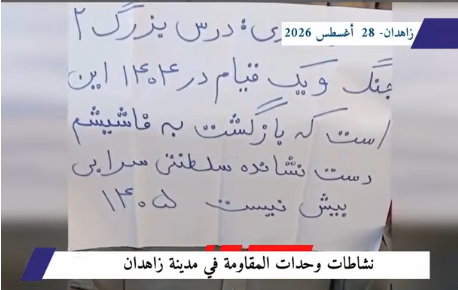 زاهدان- 28 أغسطس 2026
ری: درس بزرگ ۲
جنگ و یک قیام در ۱۴۰۴ این
است که بازگشت به فاشیشم
دست نشانده سلطنتی سرابی
بیش نیست ۱۴۰۵
نشاطات وحدات المقاومة في مدينة زاهدان